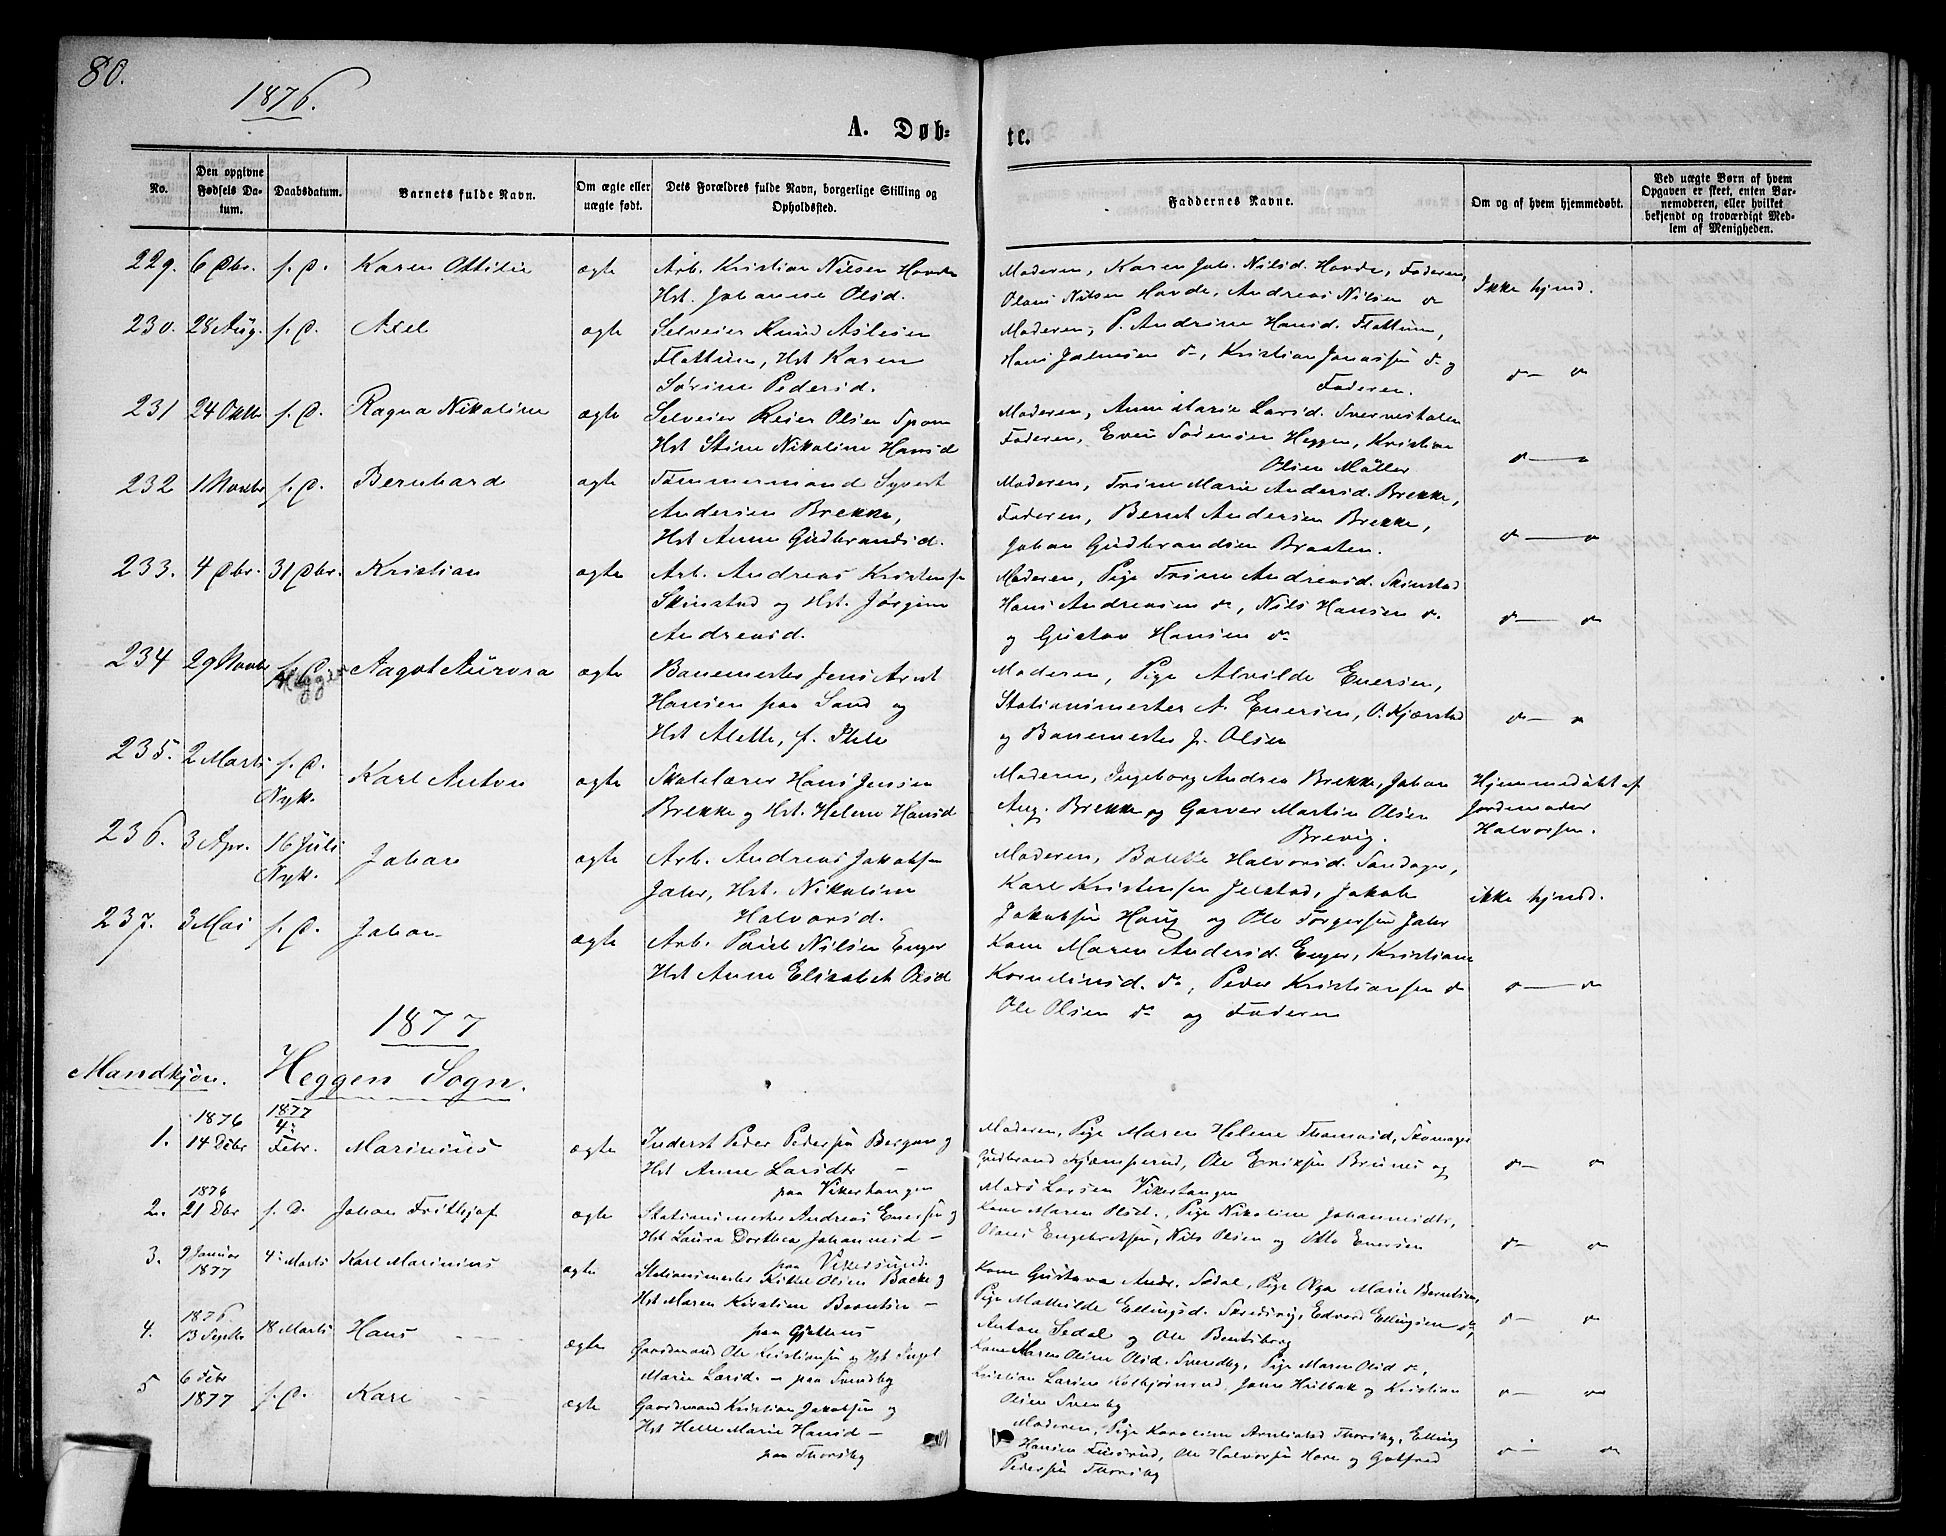 80.
1876.
A. Døb-
te.
No.
Den opgivne Fødsels Da-tum.
Daabsdatum.
Barnets fulde Navn.
Om ægte eller uægte født.
Dets Forældres fulde Navn, borgerlige Stilling og Opholdssted.
Faddernes Navne.
Om og af hvem hjemmedøbt.
Ved uægte Børn af hvem Opgaven er skeet, enten Bar-nemoderen, eller hvilket bekjendt og troværdigt Med-lem af Menigheden.
229. 6 Dbr. s. D. Karen Ottilie ægte Arb. Kristian Nilsen Hovde
Hst. Johanne Olsd.
Moderen, Karen Joh. Nilsd. Hovde, Faderen,
Olaus Nilsen Hovde, Andreas Nilsen do
Ikke hjmd.
230. 28 Aug. s. D. Axel ægte Selveier Knud Aslesen
Flattum, Hst Karen
Sørine Pedersd.
Moderen, P. Andrine Hansd. Flattum,
Hans Jalmsen do, Kristian Jonassen do og
Faderen.
do do
231 24 Oktbr s. D. Ragna Nikoline ægte Selveier Reier Olsen Spone
Hst Stine Nikoline Hansd
Moderen, Anne Marie Larsd.
Faderen, Even Sørensen Heggen, Kristian
Olsen Møller
do do
232 1 Novbr s. D. Bernhard ægte Tømmermand Syvert
Andersen Brekke,
Hst Anne Gudbrandsd.
Moderen, Trine Marie Andersd. Brekke,
Faderen, Bernt Andersen Brekke,
Johan Gudbrandsen Braaten.
do do
233. 4 Dbr. 31 Dbr. Kristian ægte Arb. Andreas Kristensen
Skinstad og Hst. Jørgine
Andreasd.
Moderen, Pige Trine Andreasd. Skinstad
Hans Andreasen do, Nils Hansen do
og Gustav Hansen do
do do
234 29 Novbr s. D. Heggen Aagot Aurora ægte Banemester Jens Arent
Hansen paa Sand og
Hst Alette, f. Ihle
Moderen, Pige Alvilde Enersen,
Stationsmester A. Enersen, O. Kjærstad
og Banemester J. Olsen
do do
235. 2 Marts s. D.
Nyk. Karl Anton ægte Skolelærer Hans Jensen
Brekke og Hst. Helene Hansd
Moderen, Ingeborg Andrea Brekke, Johan
Aug. Brekke og Garver Martin Olsen
Brevig.
Hjemmedøbt af
Jordmoder
Halvorsen.
236. 3 Apr. 16 Juli
Nyk. Johan ægte Arb. Andreas Jakobsen
Jaler, Hst. Nikoline
Halvorsd.
Moderen, Halvorsd. Sandager,
Karl Kristensen Jelstad, Jakob
Jakobsen Haug og Ole Torgersen Jaler
ikke hjmd.
237. 3 Mai s. D. Johan ægte Arb. Paul Nilsen Enger
Hst Anne Elisabet Olsd
Kone Maren Andersd. Enger, Kristiane
Kornelinsd. do, Peder Kristiansen do
Ole Olsen do og Faderen
do do
1877
Mandkjøn. Heggen Sogn.
1. 1876
14 Debr 1877
4: Febr. Marinius ægte Inderst Peder Pedersen Bergan og
Hst Anne Larsdtr
paa Vikertangen
Moderen, Pige Maren Helene Thomasd, Skomager
Gudbrand Kjæmperud, Ole Eriksen Brunes og
Mads Larsen Vikertangen
do do
2. 1876
21 Dbr s. D. Johan Frithjof ægte Stationsmester Andreas Enersen og
Hst Laura Dorthea Johannesd
paa Vikersund.
Kone Maren Olsd., Pige Nikoline Johannesdtr,
Olaves Engebretsen, Nils Olsen og Otto Enersen
do do
3. 9 Januar
1877 4: Marts Karl Marinius ægte Stationsmester Kittel Olsen Backe og
Hst Maren Kirstine Berntsen
paa Gjethus
Kone Gustava Andr. Sedal, Pige Olga Marie Berntsen,
Pige Mathilde Ellingsd. Skredsvig, Edvard Ellingsen do,
Anton Sedal og Ole Bentsborg
do do
4. 1876.
13 Septbr 18 Marts Hans ægte Gaardmand Ole Kristiansen og Hst Ingeb
Marie Larsd. paa Svendby
Kone Maren Oline Olsd. Svendby, Pige Maren Olsd do,
Kristian Larsen Kolbjørnsrud, Jonn Hulbak og Kristian
Olsen Svenby
do do
5 6 Febr
1877 s. D. Karl ægte Gaardmand Kristian Jakobsen og
Hst Helle Marie Hansd
paa Thorsby
Moderen, Pige Karoline Thorsby, Elling
Hansen Fuserud, Ole Halvorsen Hore og Gotfred
Pedersen Thorsby
do do